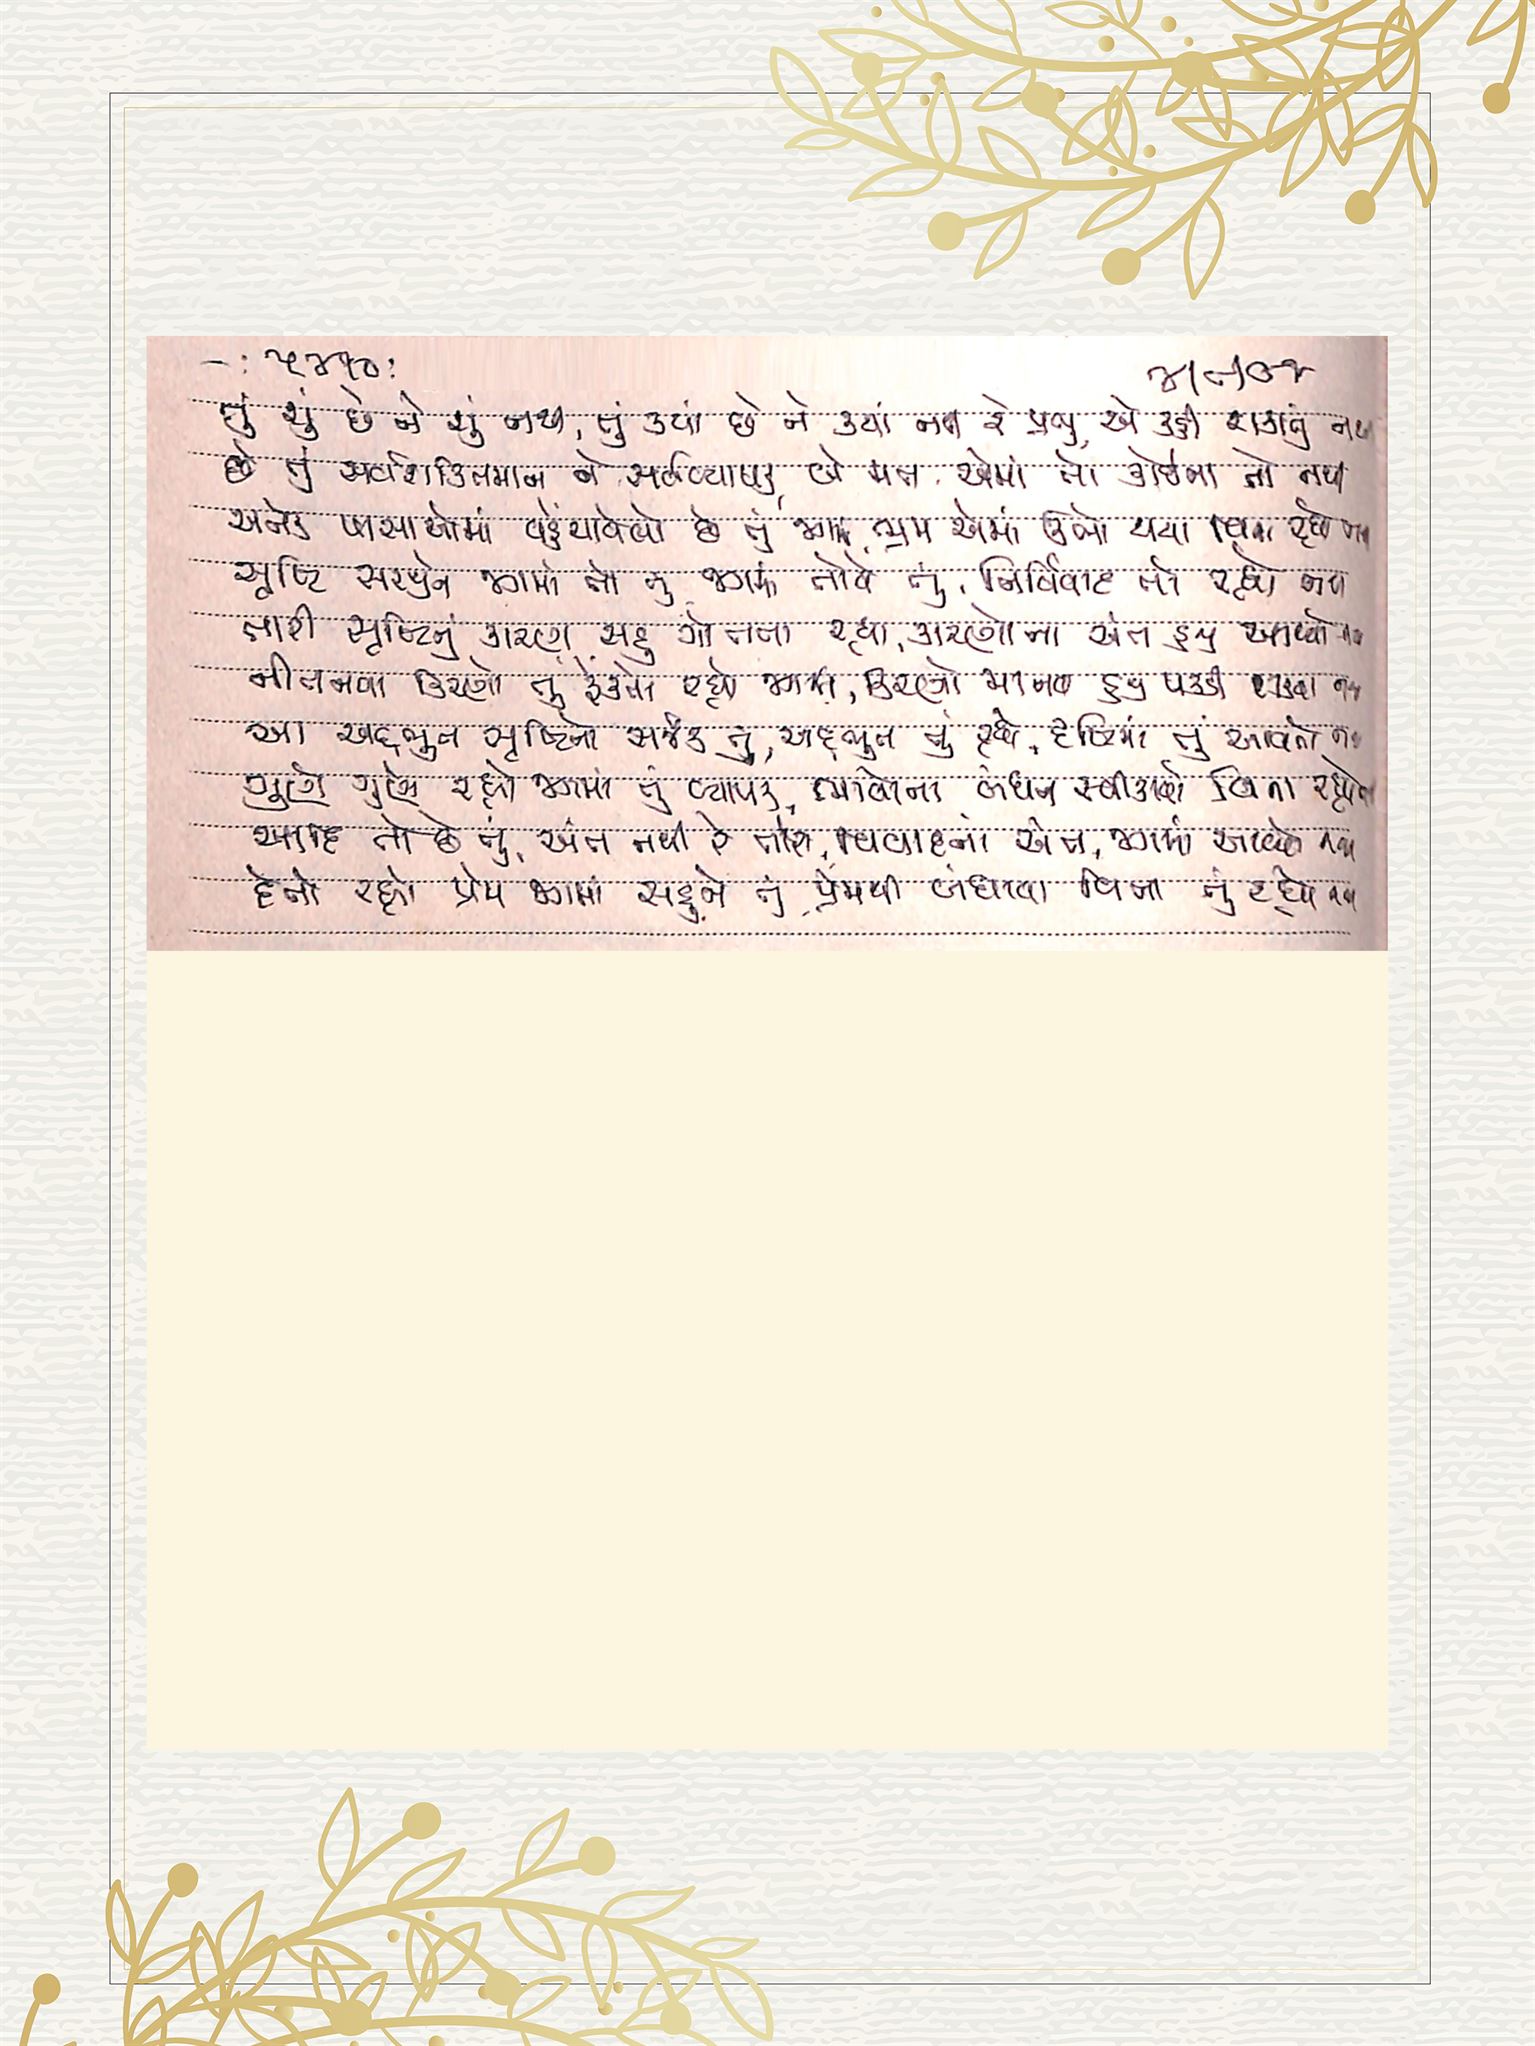 -: ૫૪૧૦:
તું શું છે ને શું નથી, તું ક્યાં છે ને ક્યાં નથી રે પ્રભુ, એ કહી શકાતું નથી
છે તું સર્વશક્તિમાન ને સર્વવ્યાપક, બે મત એમાં તો કોઈના તો નથી
અનેક પાસાઓમાં વહેંચાયેલો છે તું જગમાં, ભ્રમ એમાં ઊભો થયા વિના રહ્યો નથી
સૃષ્ટિ સરજીને જગમાં તો તું જગમાં તોયે તું, નિર્વિવાદ તો રહ્યો નથી
તારી સૃષ્ટિનું કારણ સહુ ગોતતા રહ્યા, કારણોના અંત હજુ આવ્યો નથી
નીતનવા કિરણો તું ફેંકતો રહ્યો જગમાં, કિરણો માનવ હજુ પકડી શક્યા નથી
આ અદ્દભુત સૃષ્ટિનો સર્જક તું, અદ્દભુત તું રહ્યો, દૃષ્ટિમાં તું આવતો નથી
ગુણે ગુણે રહ્યો જગમાં તું વ્યાપક, ભાવોના બંધન સ્વીકાર્યા વિના રહ્યો નથી
આદિ તો છે તું, અંત નથી રે તારો, વિવાદનો અંત, જગમાં આવ્યો નથી
દેતો રહ્યો પ્રેમ જગમાં સહુને તું, પ્રેમથી બંધાયા વિના તું રહ્યો નથી